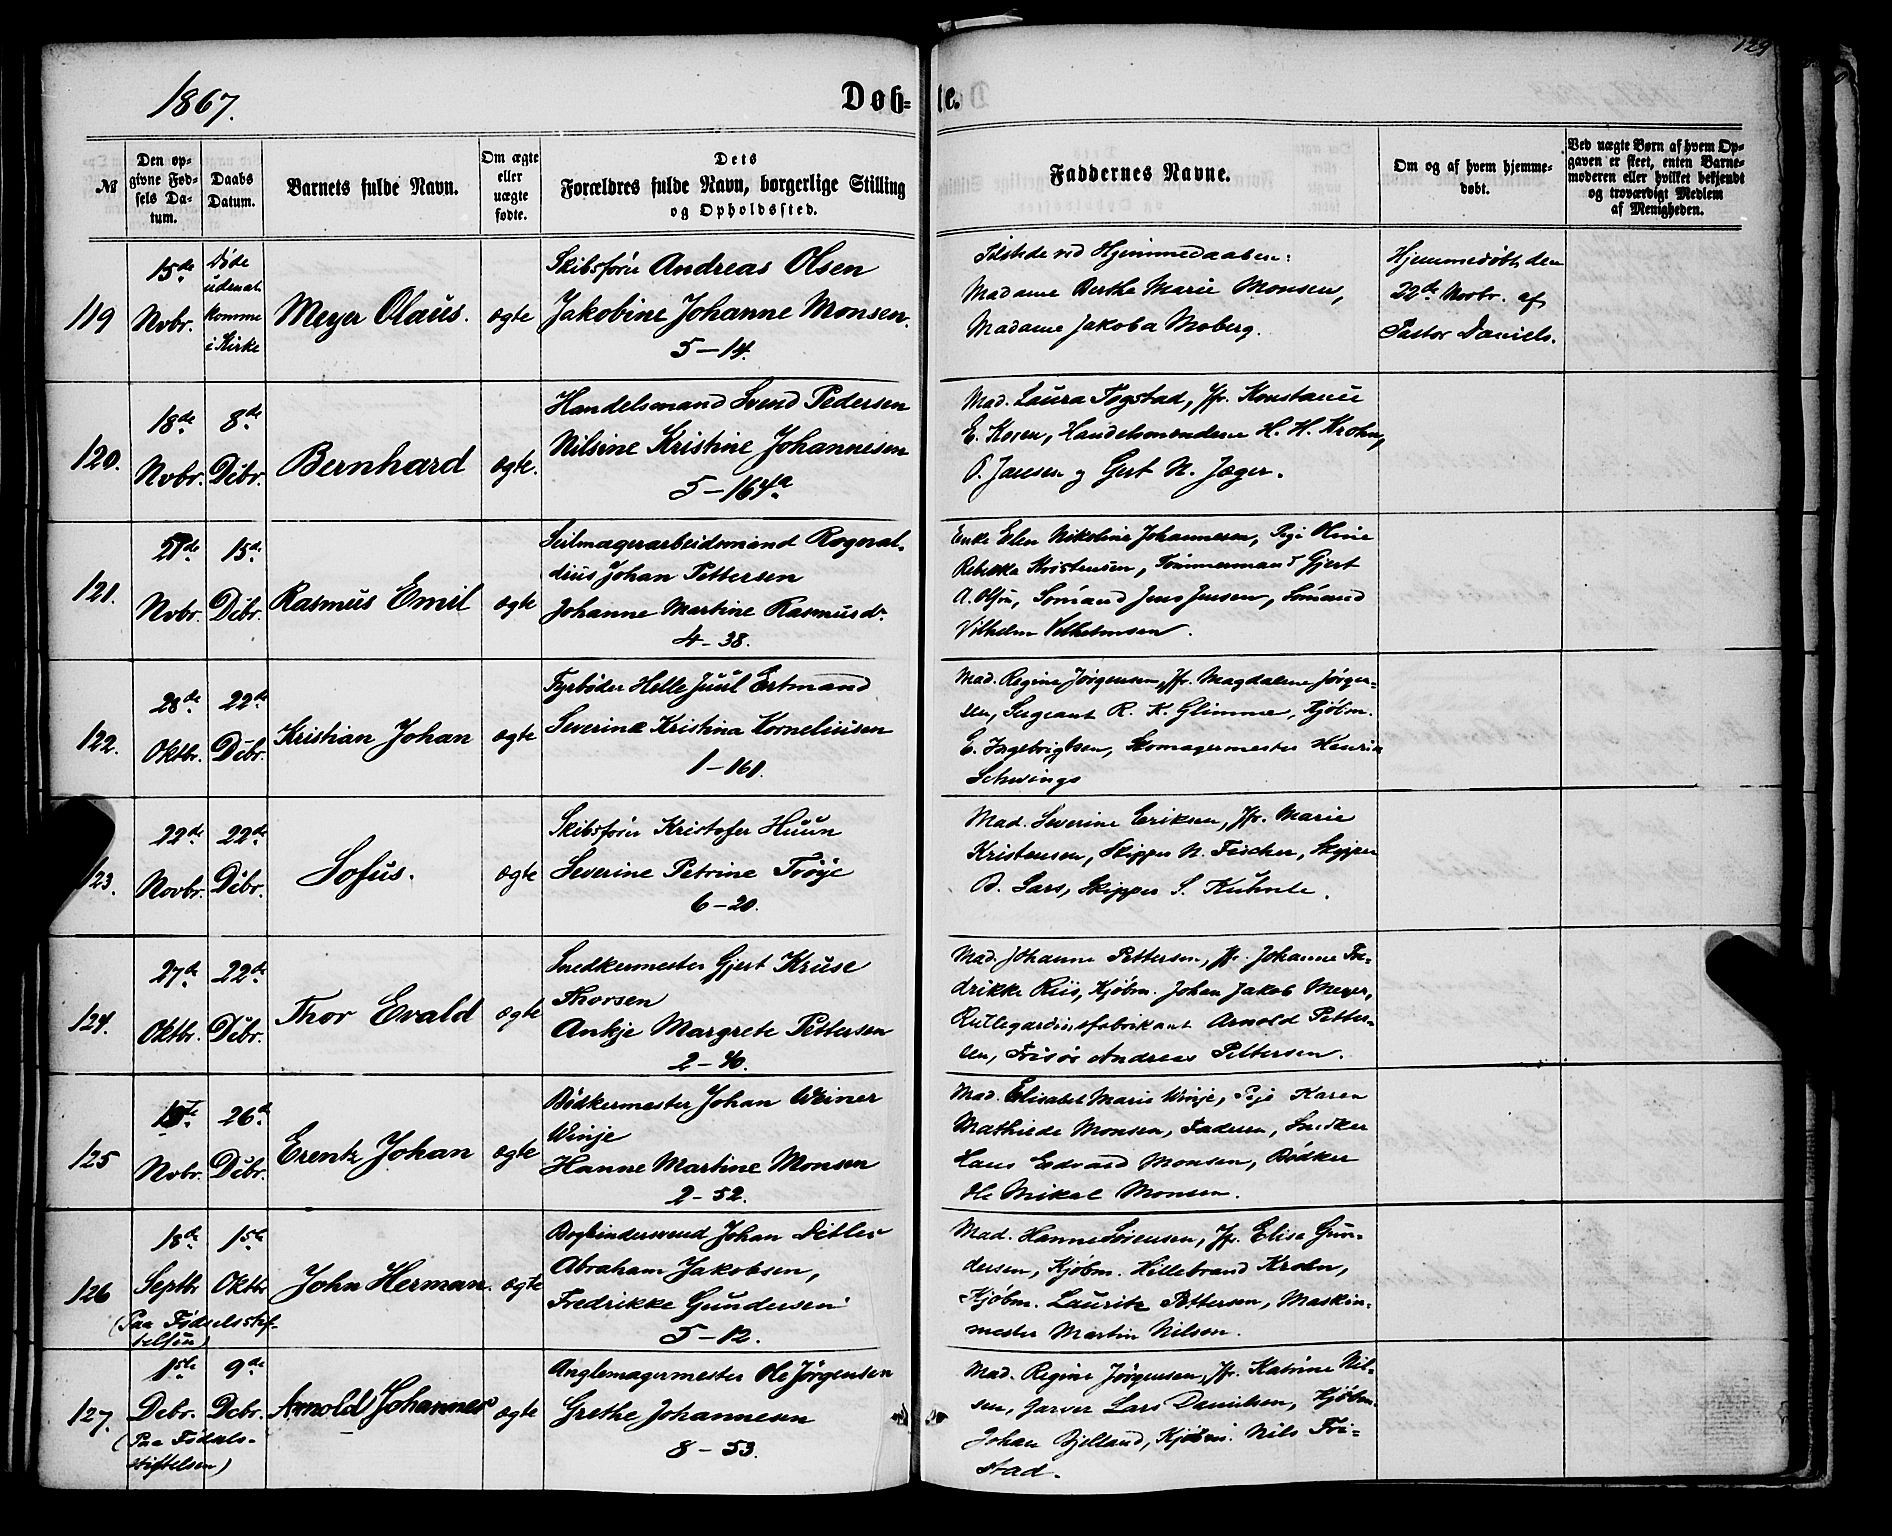 129
1867.
Døb- te.
№
Den op-
givne Fød-
sels Da-
tum.
Daabs
Datum.
Barnets fulde Navn.
Om ægte
eller
uægte
fødte.
Dets
Forældres fulde Navn, borgerlige Stilling
og Opholdssted.
Faddernes Navne.
Om og af hvem hjemme-
døbt.
Ved uægte Børn af hvem Op-
gaven er skeet, enten Barne-
moderen eller hvilket bekjendt
og troværdigt Medlem
af Menigheden.
119
15de
Novbr.
Døde
uden at
komme
i Kirke
Meyer Olaus.
ægte
Skibsfører Andreas Olsen
Jakobine Johanne Monsen.
5-14.
Tilstede ved Hjemmedaaben:
Madame Berthe Marie Monsen,
Madame Jakoba Moberg.
Hjemmedøbt den
22de Novbr. af
Pastor Daniels.
120.
18de
Novbr.
8de
Dcbr.
Bernhard
ægte.
Handelsmand Svend Pedersen
Nilsine Kristine Johannesen
5-164a
Mad. Laura Fogstad, Jfr. Konstance
E. Koren, Handelsmændene H. H. Krohn,
O. Jansen og Gert N. Jæger.
121.
21de
Novbr.
15de
Dcbr.
Rasmus Emil
ægte
Seilmagerarbeidsmand Rognval-
dius Johan Pettersen
Johanne Martine Rasmusdr.
4-38.
Enke Elen Nikoline Johannesen, Pige Oline
Rebekka Kristensen, Tømmermand Gjert
A. Olsen, Sømand Jens Jensen, Sømand
Vilhelm Vilhelmsen.
122.
28de
Oktbr.
22de
Dcbr.
Kristian Johan
ægte
Fyrbøder Helle Juul Ertmand
Severine Kristina Korneliussen
1-161.
Mad. Regine Jørgensen, Jfr. Magdalene Jørgen-
sen, Sergeant R. K. Glimme, Kjøbm.
E. Ingebrigtsen, Skomagermester Henrik
Schwings
123.
22de
Novbr.
22de
Dcbr.
Sofus.
ægte
Skibsfører Kristofer Huun
Severine Petrine Trøje
6-20.
Mad. Severine Eriksen, Jfr. Marie
Kristensen, Skipper N. Fischer, Skipper
B. Lars, Skipper S. Kuhnle.
124.
27de
Oktbr.
22de
Dcbr.
Thor Evald
ægte
Snedkermester Gjert Kruse
Thorsen
Ankje Margrete Pettersen
2-40.
Mad. Johanne Pettersen, Jfr. Johanne Fre-
drikke Riis, Kjøbm. Johan Jakob Meyer,
Rullegardinsfabrikant Arnold Petter-
sen, Frisør Andreas Pettersen.
125
Novbr.
26de
Dcbr.
Erentz Johan
ægte
Bødkermester Johan Weiner
Winje
Hanne Martine Monsen
2-52.
Mad. Elisabet Marie Winje, Pige Karen
Mathilde Monsen, Faderen, Snedker
Hans Edvard Monsen, Bødker
Ole Mikal Monsen.
126
18de
Septbr
(Paa Fødselsstif-
telsen)
15de
Oktbr
John Herman.
ægte
Bogbindersvend Johan Ditlev
Abraham Jakobsen,
Fredrikke Gundersen
5-12.
Mad. Hanne Sørensen, Jfr. Elisa Gun-
dersen, Kjøbm. Hillebrand Krohn,
Kjøbm. Lauritz Pettersen, Maskin-
mester Martin Nilsen.
127.
1ste
Dcbr.
(Paa Fødsels-
stiftelsen)
9de
Dcbr.
Arnold Johannes
ægte
Anglemagermester Ole Jørgensen
Grethe Johannesen
8-53.
Mad. Regine Jørgensen, Jfr. Katrine Nil-
sen, Garver Lars Danielsen, Kjøbm.
Johan Bjelland, Kjøbm. Nils Fri-
stad.